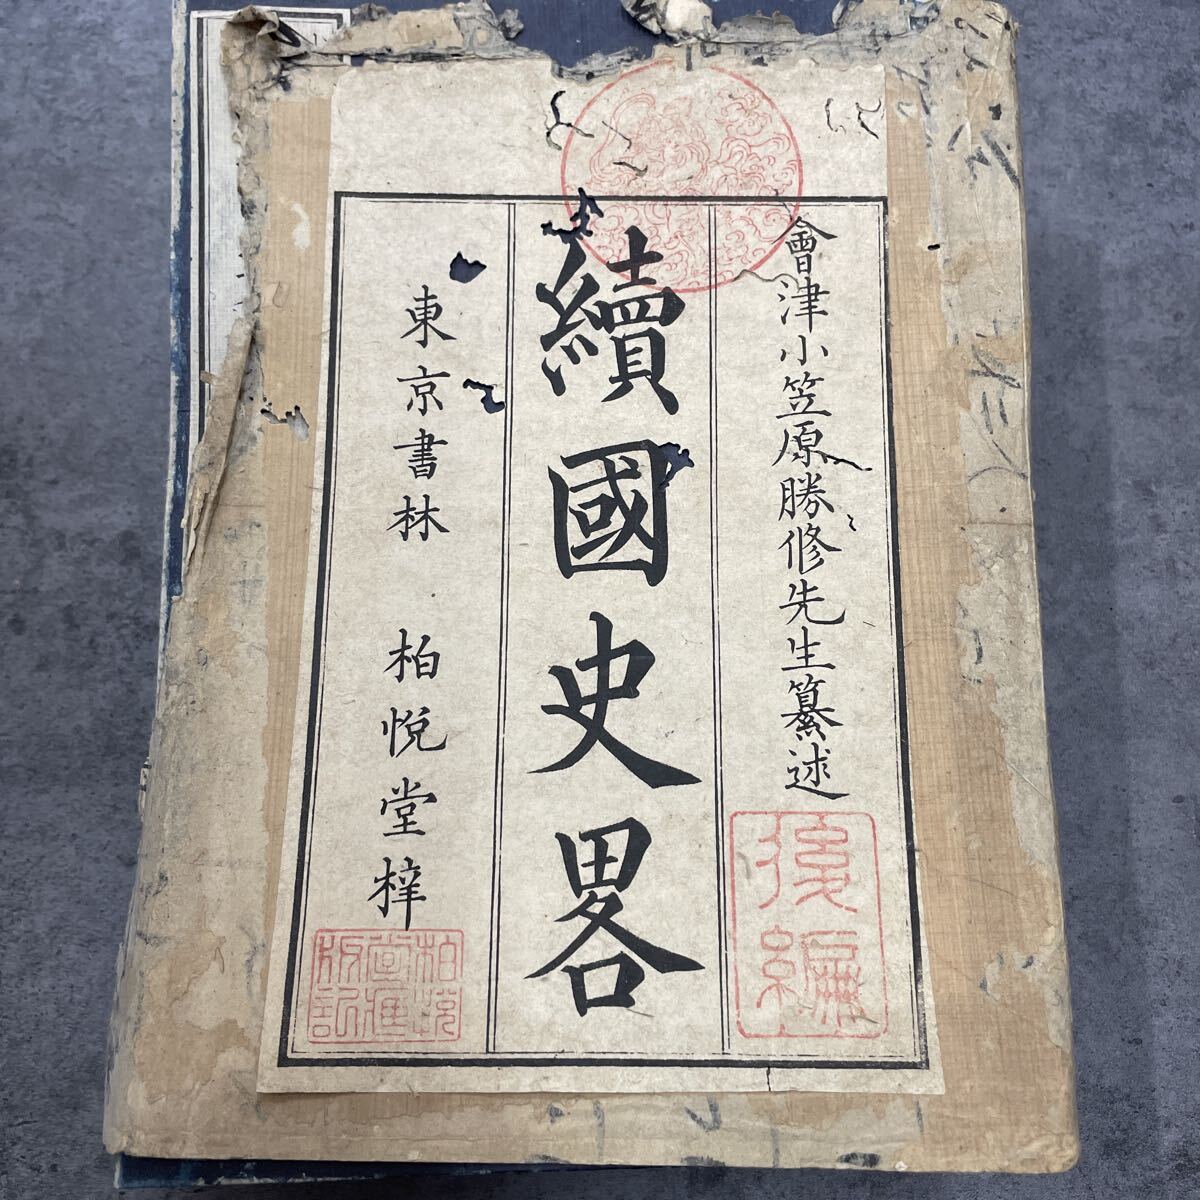 會津小笠原勝修先生纂述
後編
續國史畧
東京書林 柏悅堂梓